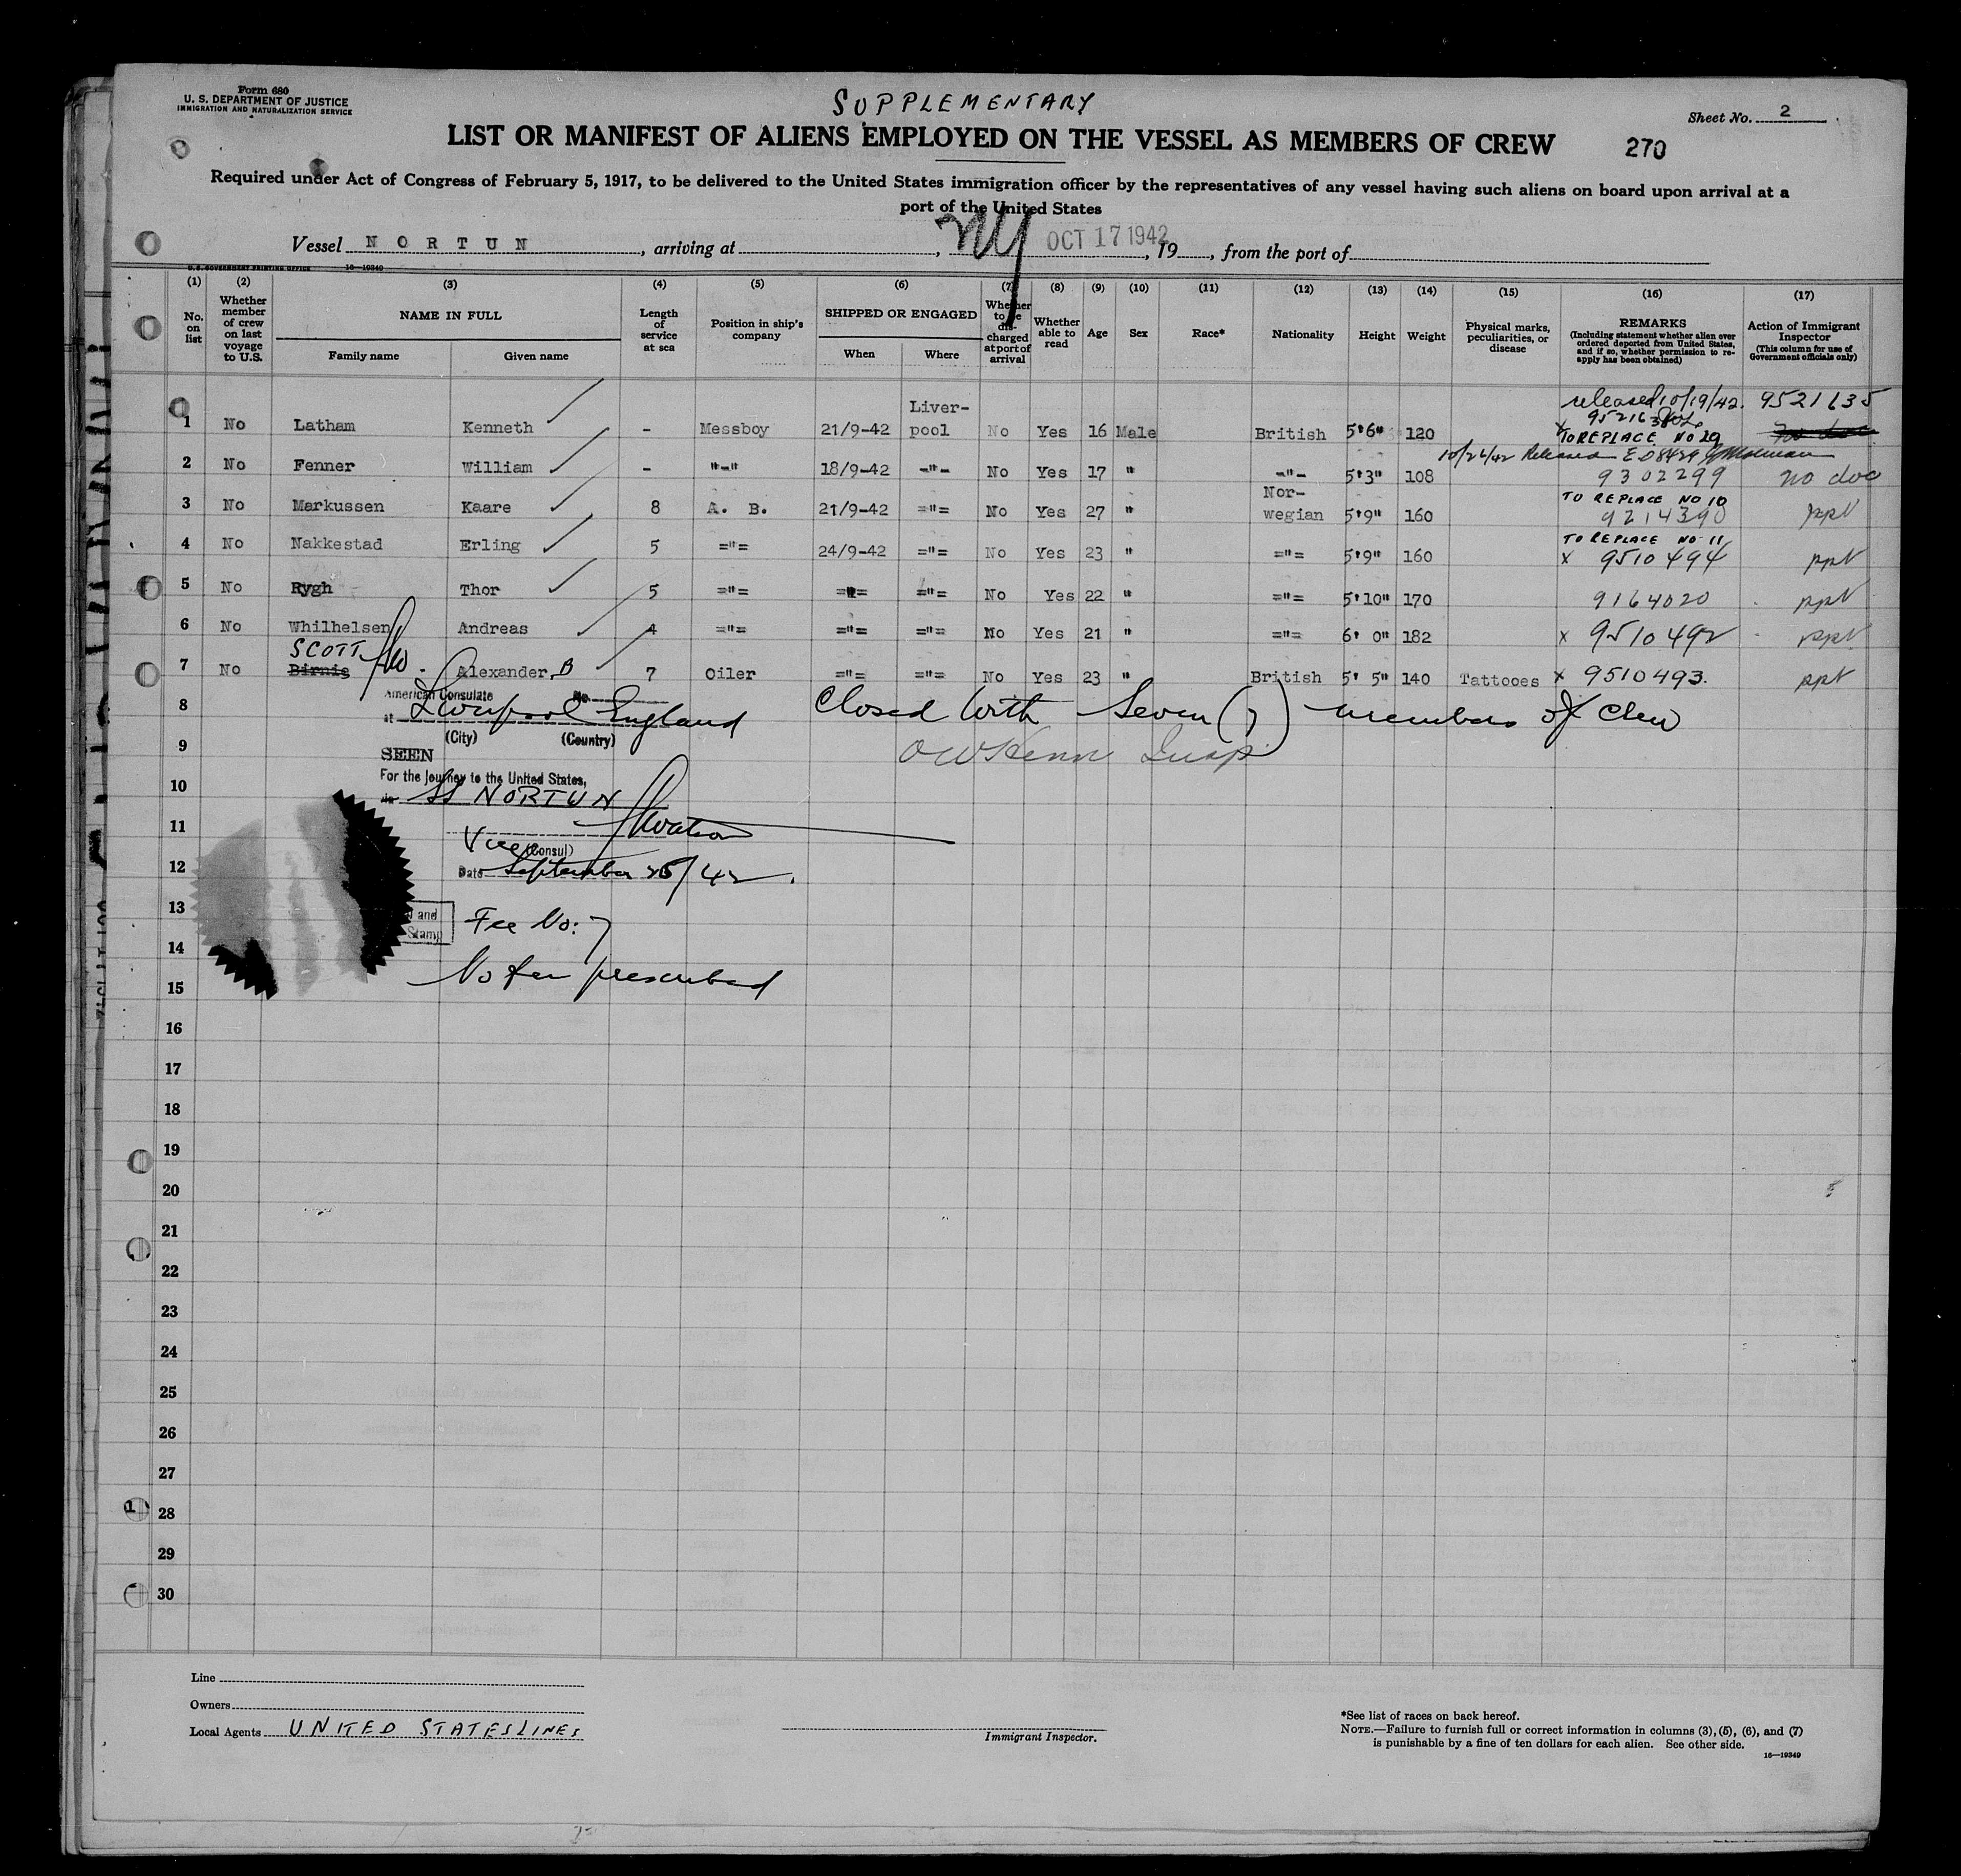 Form 680
U. S. DEPARTMENT OF JUSTICE
IMMIGRATION AND NATURALIZATION SERVICE
SUPPLEMENTARY
Sheet No. 2
LIST OR MANIFEST OF ALIENS EMPLOYED ON THE VESSEL AS MEMBERS OF CREW
270
Required under Act of Congress of February 5, 1917, to be delivered to the United States immigration officer by the representatives of any vessel having such aliens on board upon arrival at a
port of the United States
Vessel NORTUN, arriving at , NY OCT 17 1942, 19 , from the port of
U.S. GOVERNMENT PRINTING OFFICE 16—19349
(1) (2) (3) (4) (5) (6) (7) (8) (9) (10) (11) (12) (13) (14) (15) (16) (17)
No. on list
Whether member of crew on last voyage to U.S.
NAME IN FULL
Family name
Given name
Length of service at sea
Position in ship's company
SHIPPED OR ENGAGED
When
Where
Whether to be discharged at port of arrival
Whether able to read
Age
Sex
Race*
Nationality
Height
Weight
Physical marks, peculiarities, or disease
REMARKS
(Including statement whether alien ever ordered deported from United States, and if so, whether permission to reapply has been obtained)
Action of Immigrant Inspector
(This column for use of Government officials only)
released 10/19/42. 9521635
1 No Latham Kenneth - Messboy 21/9-42 Liver-pool No Yes 16 Male British 5'6" 120 x TO REPLACE NO 29
10/26/42 Released
2 No Fenner William - "-" 18/9-42 -"- No Yes 17 " -"- 5'3" 108 9302299 no doc
3 No Markussen Kaare 8 A. B. 21/9-42 ="= No Yes 27 " Nor-wegian 5'9" 160 TO REPLACE NO 10 9214390 ppt
4 No Nakkestad Erling 5 ="= 24/9-42 ="= No Yes 23 " ="= 5'9" 160 TO REPLACE NO 11 x 9510494 ppt
5 No Rygh Thor 5 ="= ="= ="= No Yes 22 " ="= 5'10" 170 9164020 ppt
6 No Whilhelsen Andreas 4 ="= ="= ="= No Yes 21 " ="= 6' 0" 182 x 9510492 ppt
SCOTT
7 No Birnie Alexander B 7 Oiler ="= ="= No Yes 23 " British 5' 5" 140 Tattooes x 9510493. ppt
American Consulate No
8 at Liverpool England Closed With Seven (7) members of Crew
(City) (Country)
9 SEEN
For the Journey to the United States,
10 in SS NORTUN
11
Vice (Consul)
12 Date September 25/42.
13 Fee No: 7
and
Stamp
14
No fee prescribed
15
16
17
18
19
20
21
22
23
24
25
26
27
28
29
30
Line
Owners
Local Agents UNITED STATES LINES
Immigrant Inspector.
*See list of races on back hereof.
NOTE.—Failure to furnish full or correct information in columns (3), (5), (6), and (7)
is punishable by a fine of ten dollars for each alien. See other side.
16—19349